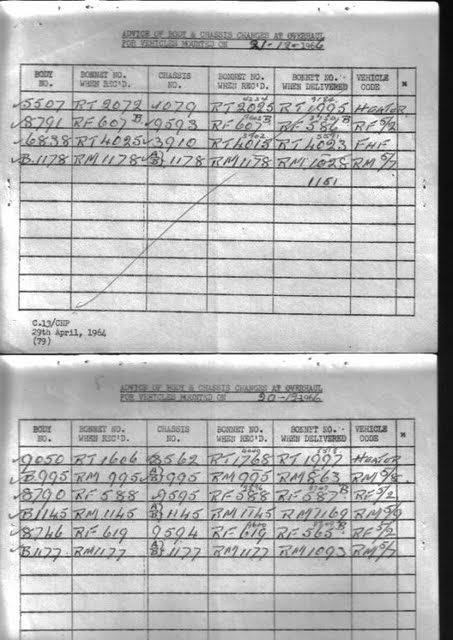 ADVICE OF BODY & CHASSIS CHANGES AT OVERHAUL
FOR VEHICLES MOUNTED ON 21-12-1966
BODY NO. BONNET NO. WHEN REC'D. CHASSIS NO. BONNET NO. WHEN REC'D. BONNET NO. WHEN DELIVERED VEHICLE CODE
✓5507 RT 2072 ✓1079 RT 2025 RT 1995 HEATER
✓8791 RF 607 B ✓9593 RF 607 RF 586 B RF 5/2
✓6838 RT 4025 ✓3910 RT 4015 RT 4023 FHF
✓B.1178 RM 1178 1178 RM 1178 RM 1028 RM 5/7
1151
C.13/CHP
29th April, 1964
(79)
ADVICE OF BODY & CHASSIS CHANGES AT OVERHAUL
FOR VEHICLES MOUNTED ON 20-12-1966
BODY NO. BONNET NO. WHEN REC'D. CHASSIS NO. BONNET NO. WHEN REC'D. BONNET NO. WHEN DELIVERED VEHICLE CODE
✓9050 RT 1606 8562 RT 1768 RT 1997 HEATER
✓B995 RM 995 995 RM 995 RM 863 RM 5/8
✓8790 RF 588 9595 RF 588 RF 587 B RF 5/2
✓B1145 RM 1145 1145 RM 1145 RM 1169 RM 5/9
✓8746 RF 619 9594 RF 619 RF 565 B RF 5/2
✓B1177 RM 1177 1177 RM 1177 RM 1093 RM 5/7